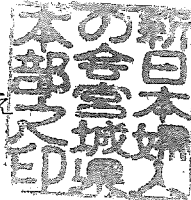 新日本婦人
の会宮城県
本部之印